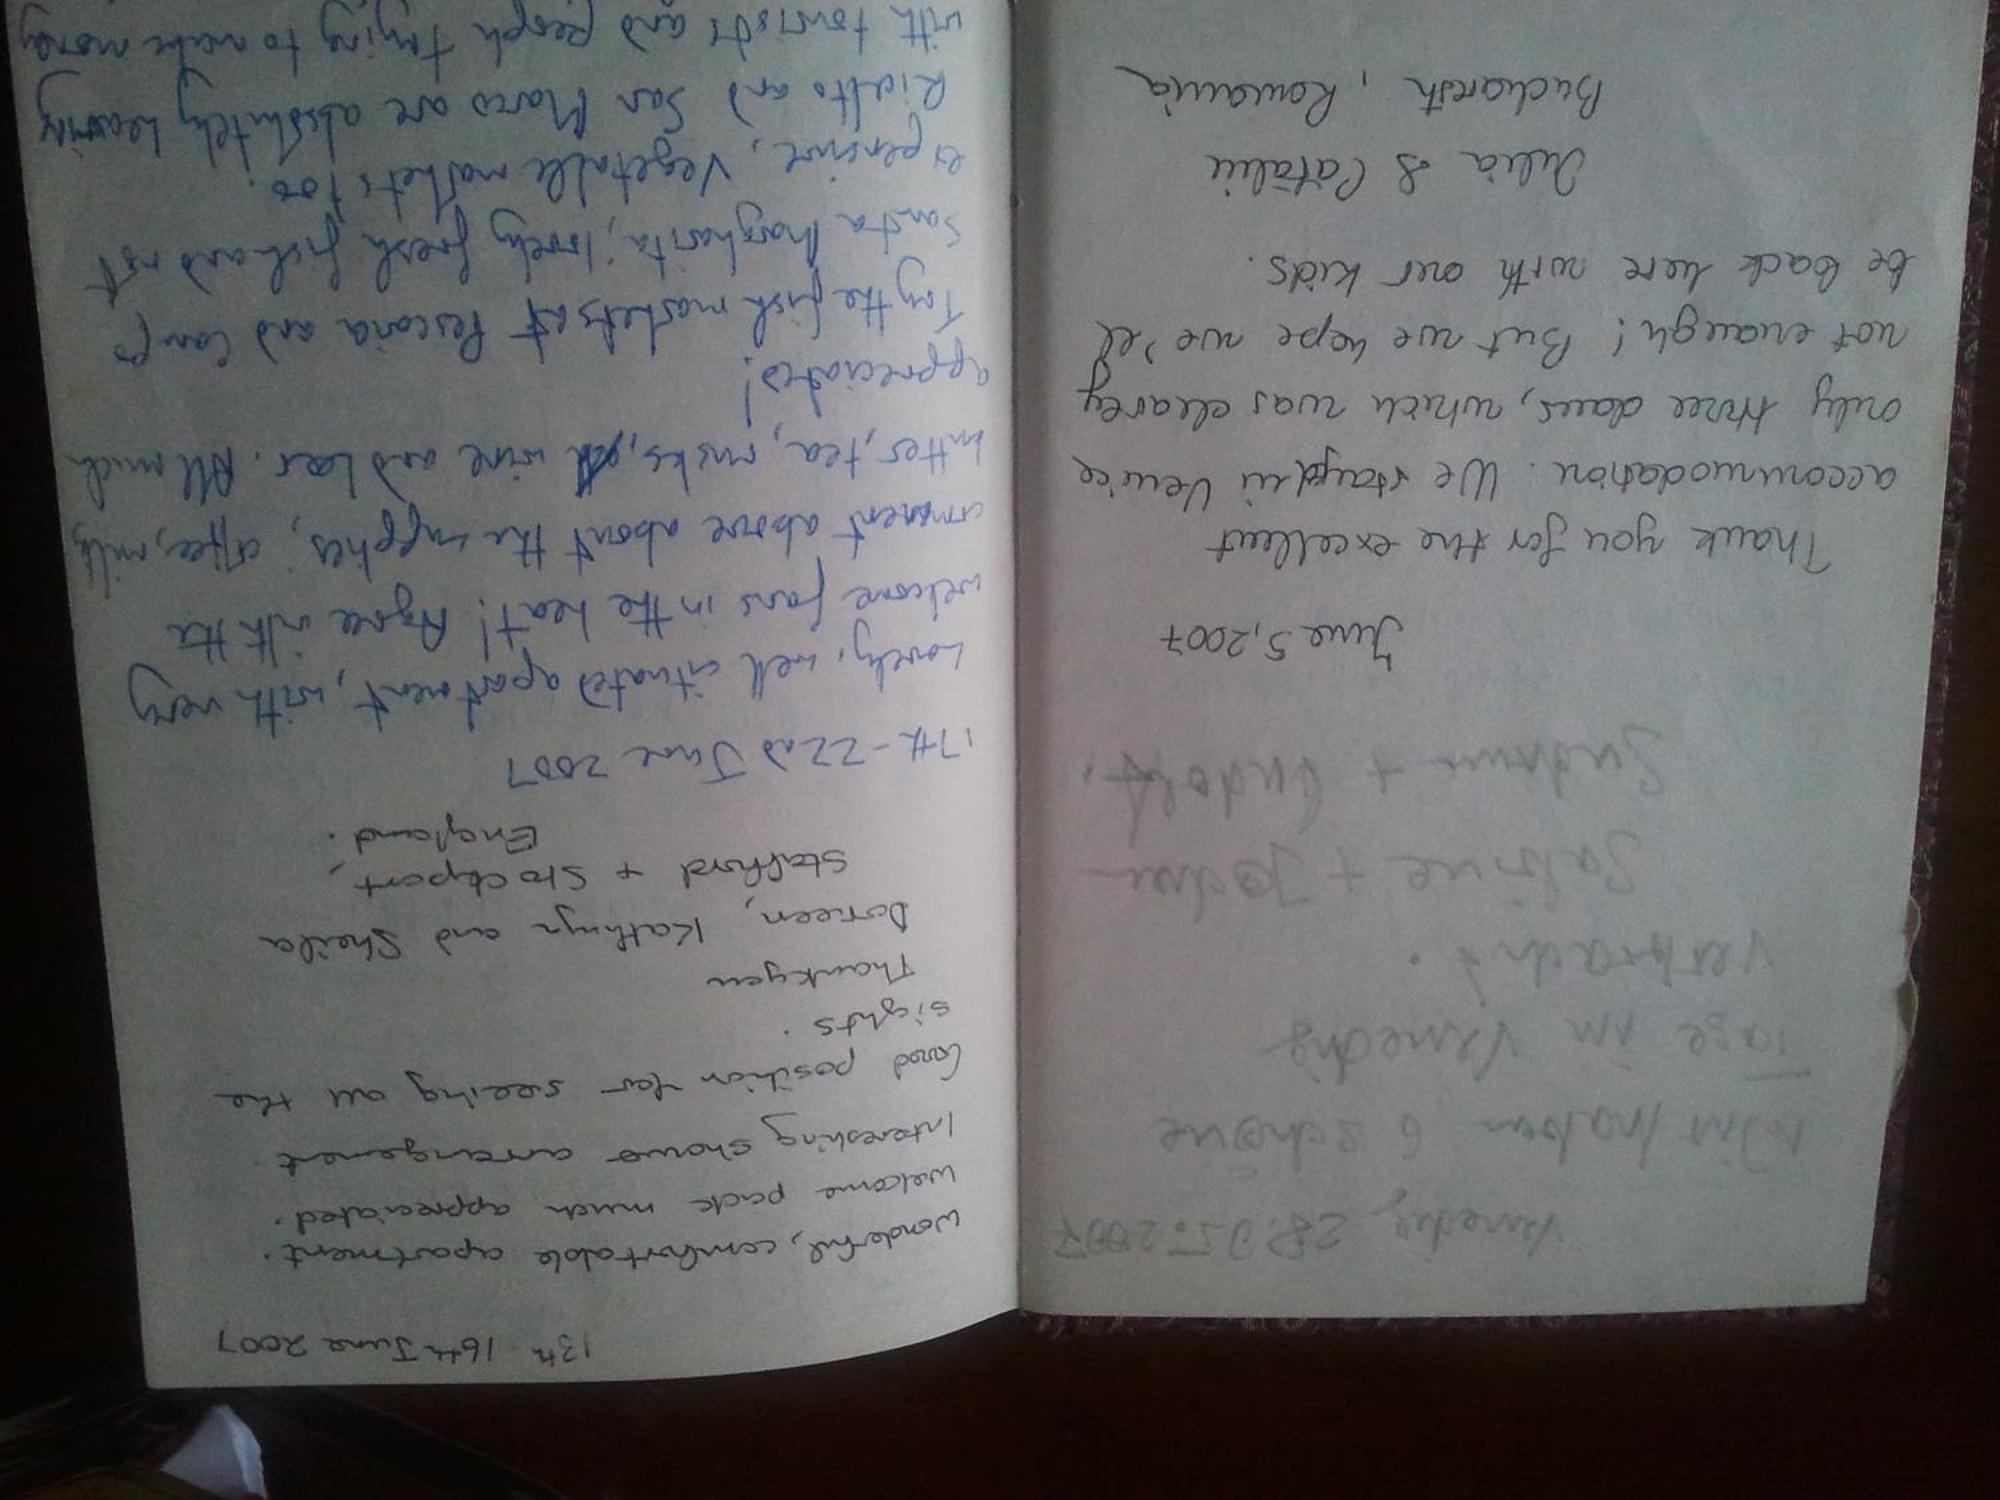 Venedig, 28.05.2007
Wir haben 6 schöne
Tage in Venedig
verbracht.
Sabine + Jochen
Gudrun + Rudolf.
June 5, 2007
Thank you for the excellent
accommodation. We stayed in Venice
only three days, which was clearly
not enough! But we hope we'll
be back here with our kids.
Iulia & Cătălin
Bucharest, Romania
13th 16th June 2007
Wonderful, comfortable apartment.
Welcome pack much appreciated.
Interesting shower arrangement.
Good position for seeing all the
sights.
Thankyou
Doreen, Kathryn and Sheila
Stafford + Stockport,
England.
17th - 22nd June 2007
Lovely, well situated apartment, with very
welcome fans in the heat! Agree with the
comment above about the supplies, coffee, milk,
butter, tea, rusks, wine and beer. All much
appreciated!
Try the fish markets at Pescaria and Campo
Santa Margharita, lovely fresh fish and not
expensive, Vegetable markets too.
Rialto and San Marco are absolutely heaving
with tourists and people trying to make money